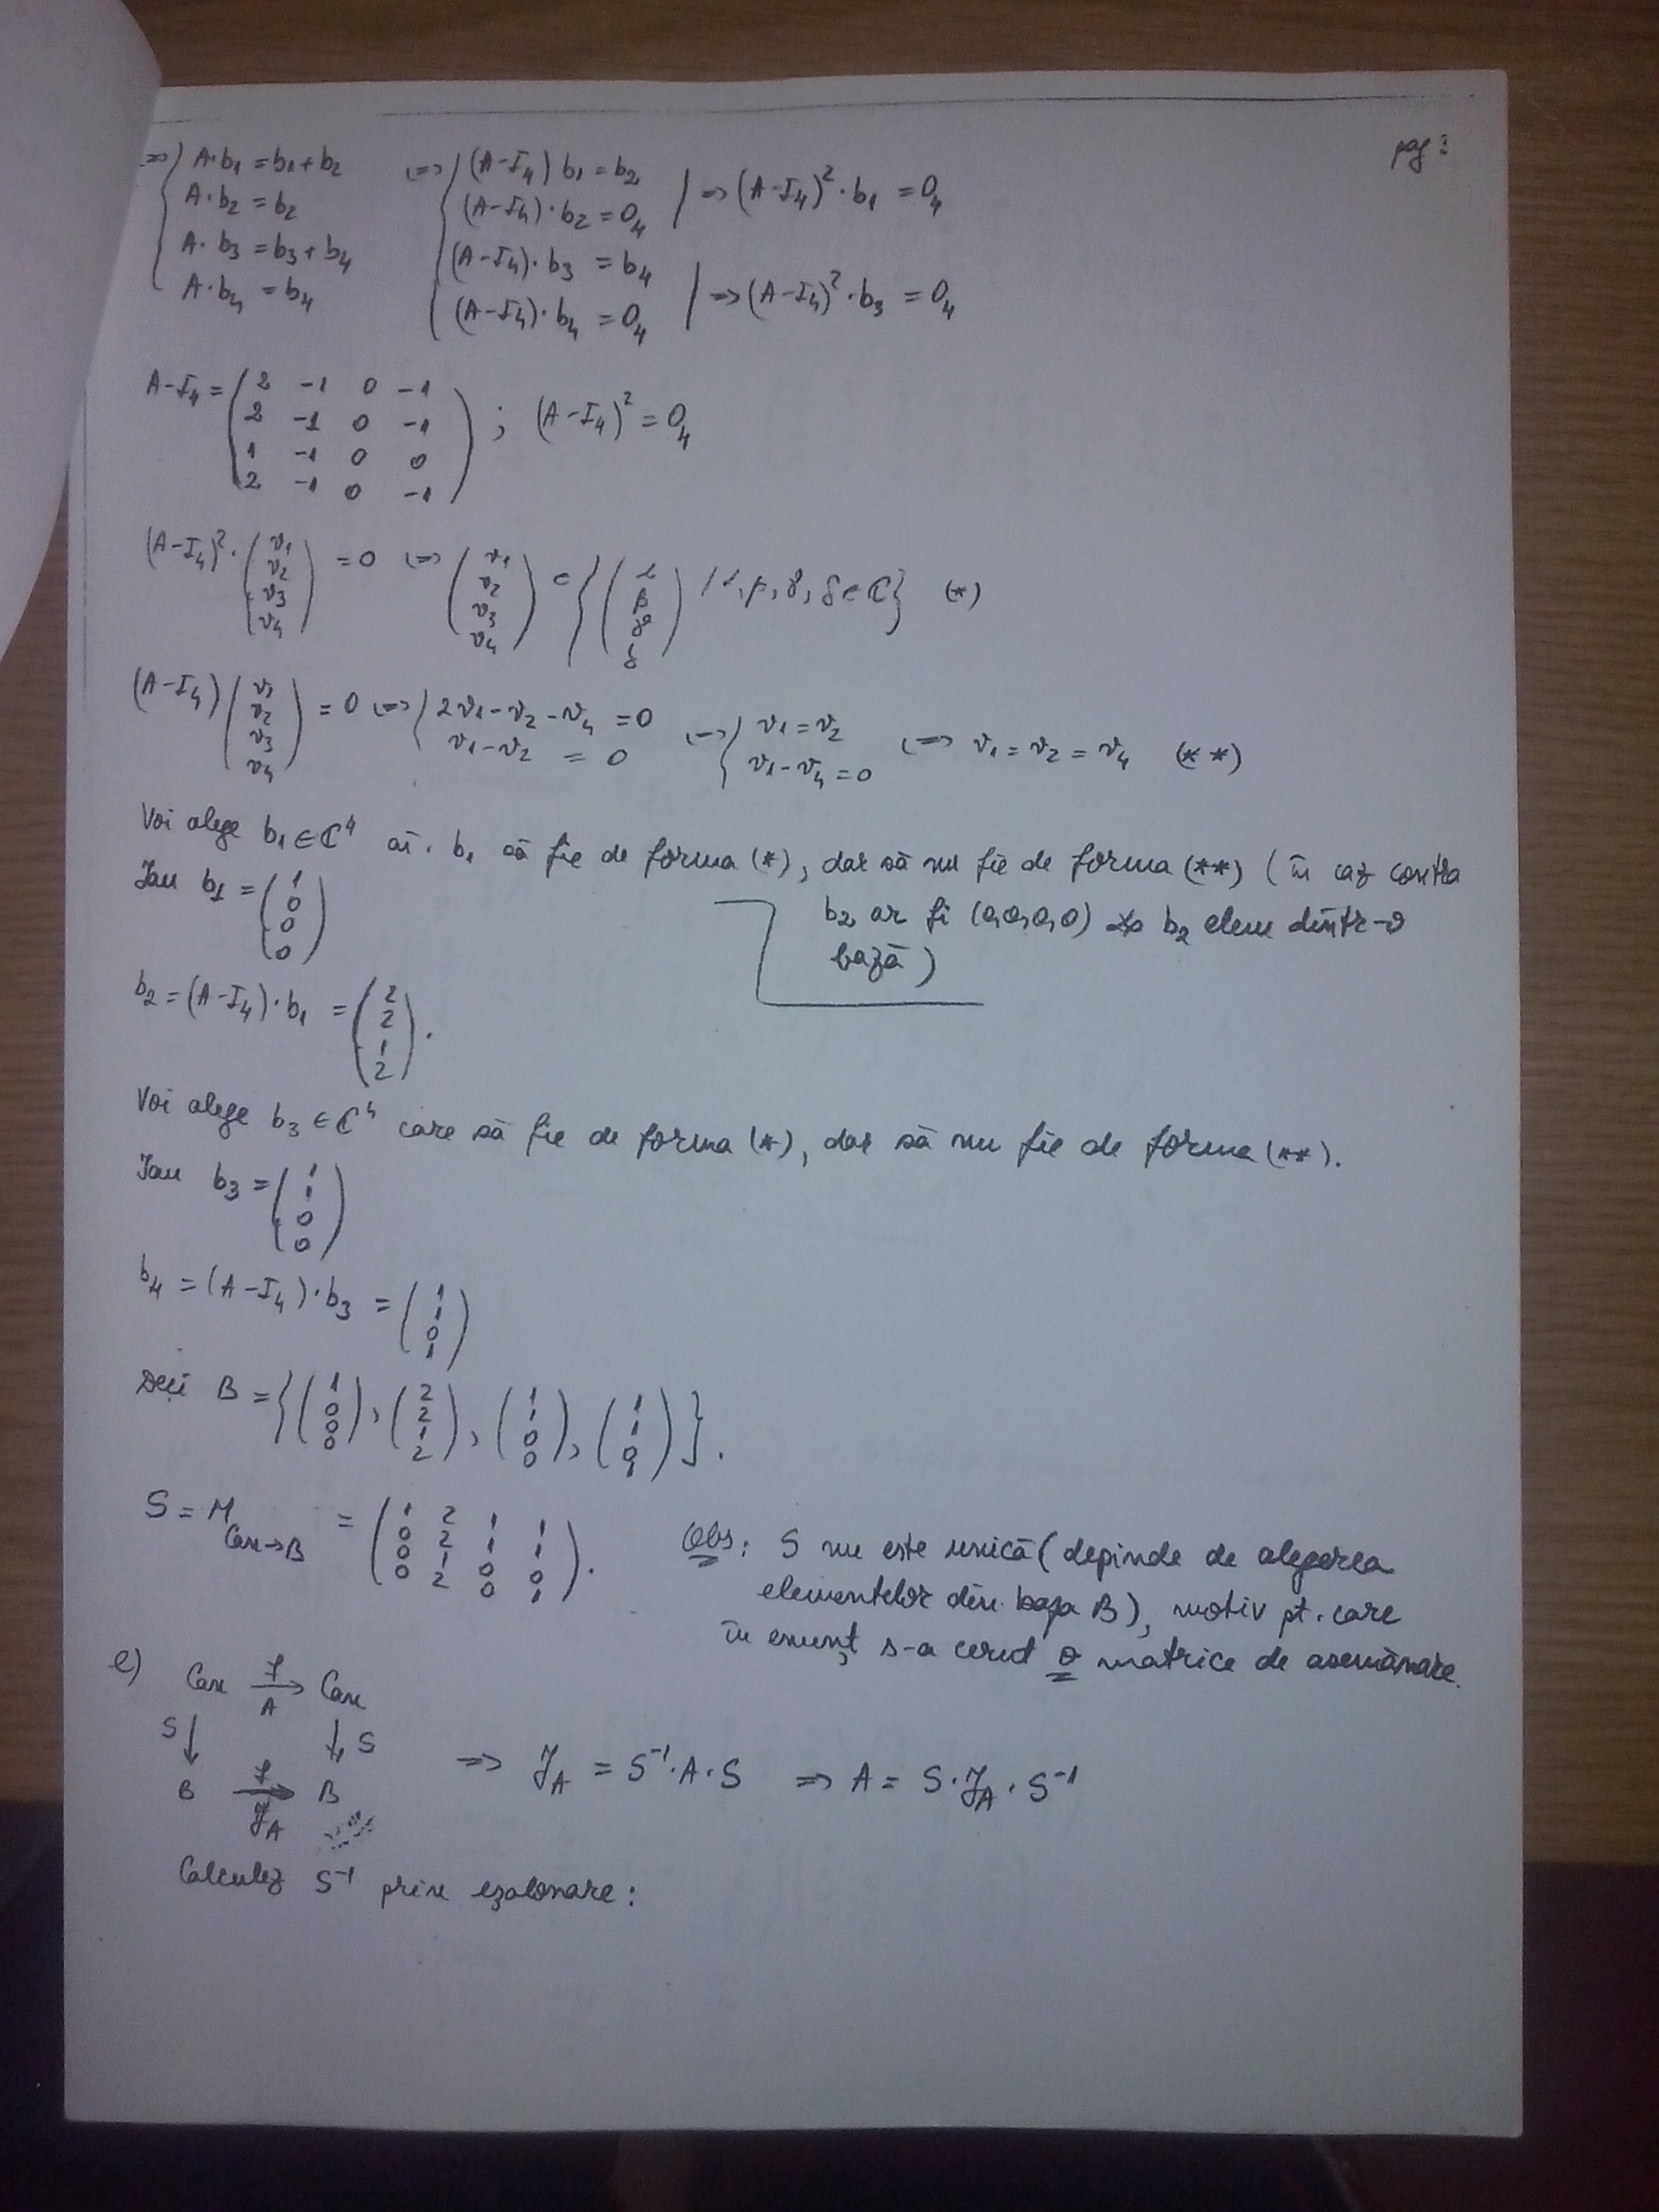 pag:
=> { A·b1 = b1+b2 <=> { (A-I4) b1 = b2 | => (A-I4)²·b1 = O4
A·b2 = b2 (A-I4)·b2 = O4
A·b3 = b3+b4 (A-I4)·b3 = b4 | => (A-I4)²·b3 = O4
A·b4 = b4 (A-I4)·b4 = O4
A-I4 = ( 2 -1 0 -1
2 -1 0 -1 ; (A-I4)² = O4
1 -1 0 0
2 -1 0 -1 )
(A-I4)²·(v1 v2 v3 v4) = 0 <=> (v1 v2 v3 v4) ∈ { (α β γ δ) | α, β, γ, δ ∈ ℂ } (*)
(A-I4)(v1 v2 v3 v4) = 0 <=> { 2v1-v2-v4 = 0 <=> { v1 = v2 <=> v1 = v2 = v4 (**)
v1-v2 = 0 v1-v4 = 0
Voi alege b1 ∈ ℂ⁴ aî. b1 să fie de forma (*), dar să nu fie de forma (**) (în caz contra
Iau b1 = (1 0 0 0) b2 ar fi (0,0,0,0) b2 elem dintr-o
bază)
b2 = (A-I4)·b1 = (2 2 1 2).
Voi alege b3 ∈ ℂ⁴ care să fie de forma (*), dar să nu fie de forma (**).
Iau b3 = (1 1 0 0)
b4 = (A-I4)·b3 = (1 1 0 1)
Deci B = { (1 0 0 0), (2 2 1 2), (1 1 0 0), (1 1 0 1) }.
S = M Can→B = ( 1 2 1 1
0 2 1 1
0 1 0 0
0 2 0 1 ).
Obs: S nu este unică (depinde de alegerea
elementelor din baza B), motiv pt. care
în enunț s-a cerut o matrice de asemănare.
e) Can f→ A Can
S↓ ↓S => JA = S⁻¹·A·S => A = S·JA·S⁻¹
B f→ JA B
Calculez S⁻¹ prin eșalonare: